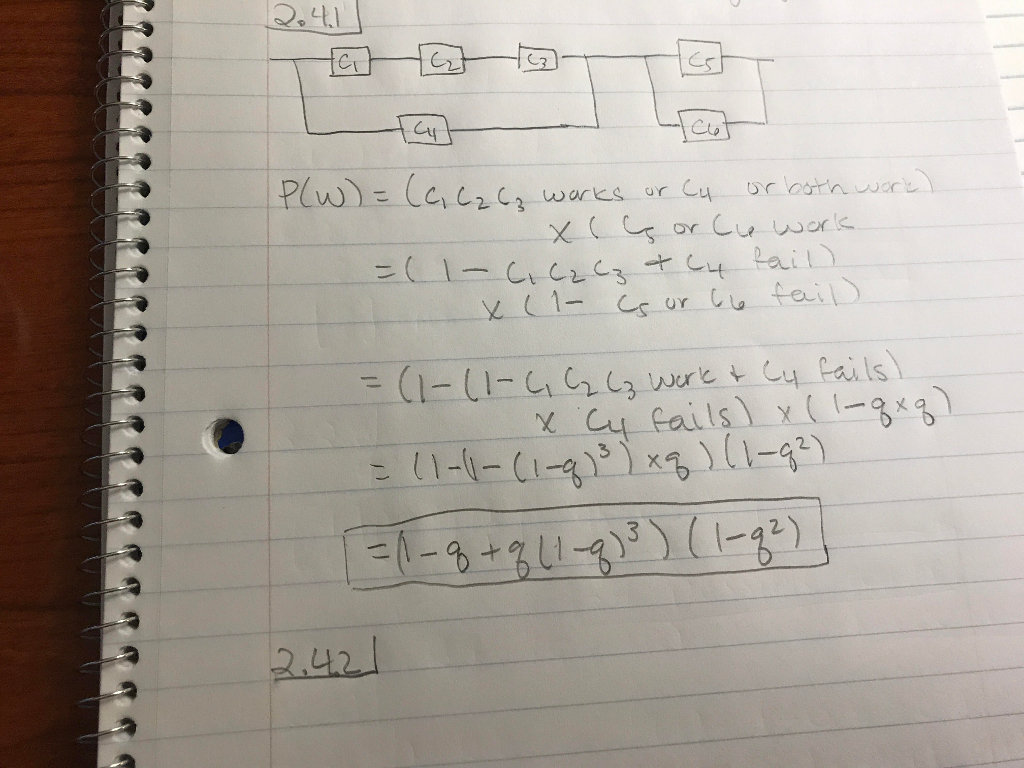 2.4.1
C1 C2 C3 C5
C4 C6
P(W) = (C1 C2 C3 works or C4 or both work)
x ( C5 or C6 work
= ( 1 - C1 C2 C3 + C4 fail)
x (1 - C5 or C6 fail)
= (1-(1- C1 C2 C3 work + C4 fails)
x C4 fails) x (1-q×q)
= (1-(1-(1-q)³)×q)(1-q²)
= (1-q+q(1-q)³)(1-q²)
2.4.2